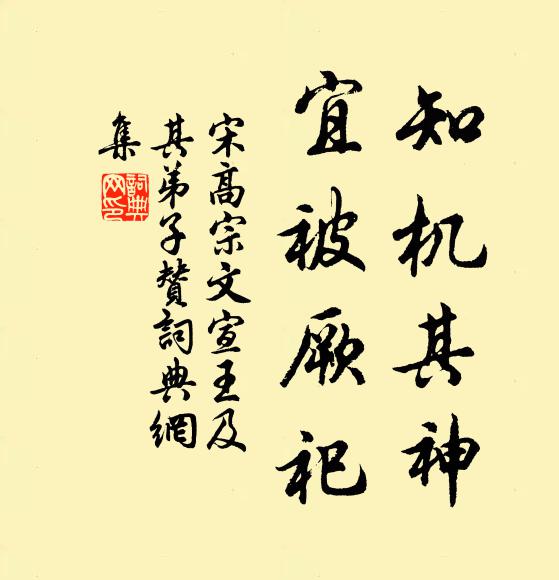 知机其神
宜被厥祀
宋高宗文宣王及
其弟子赞詞典網
集
詞典
网印